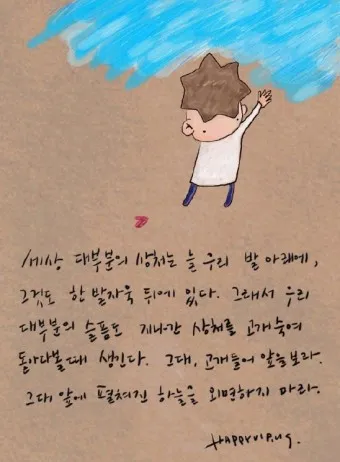 세상 대부분의 상처는 늘 우리 발 아래에,
그것도 한 발자욱 뒤에 있다. 그래서 우리
대부분의 슬픔도 지나간 상처를 고개숙여
돌아다볼때 생긴다. 그대, 고개들어 앞을보라.
그대 앞에 펼쳐진 하늘을 외면하지 마라.
HAPPYVIP.ug.